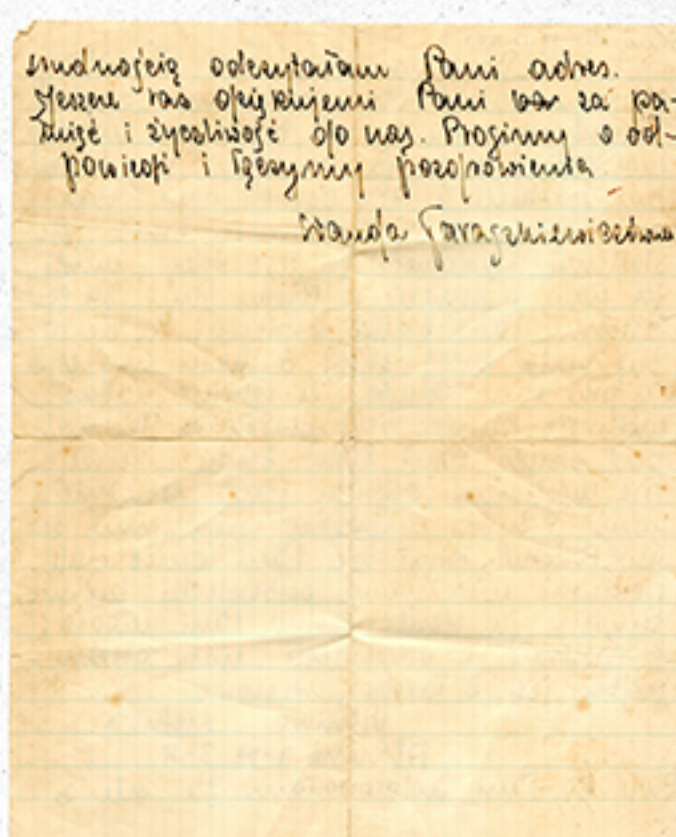 trudnością odczytałam Pani adres.
Jeszcze raz dziękujemy Pani za pa-
mięć i życzliwość do nas. Prosimy o od-
powiedź i łączymy pozdrowienia
Wanda Taraszkiewiczówna